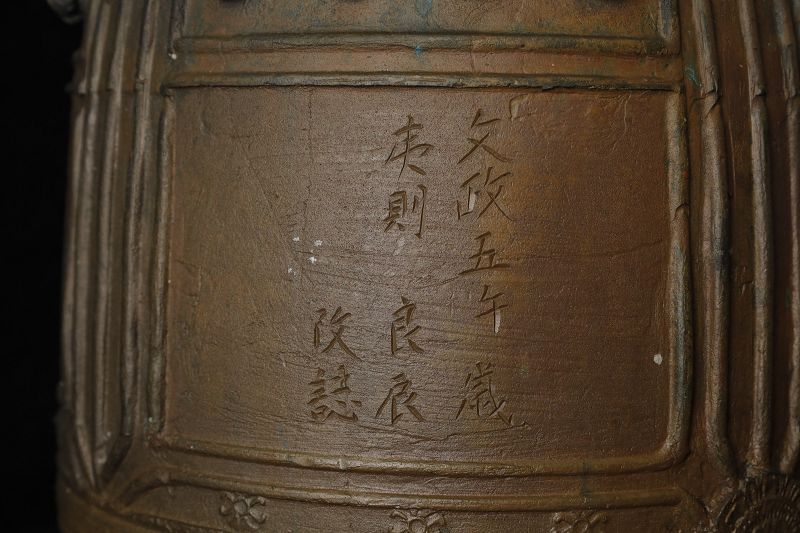 文政五午歳
夷則 良辰
改誌